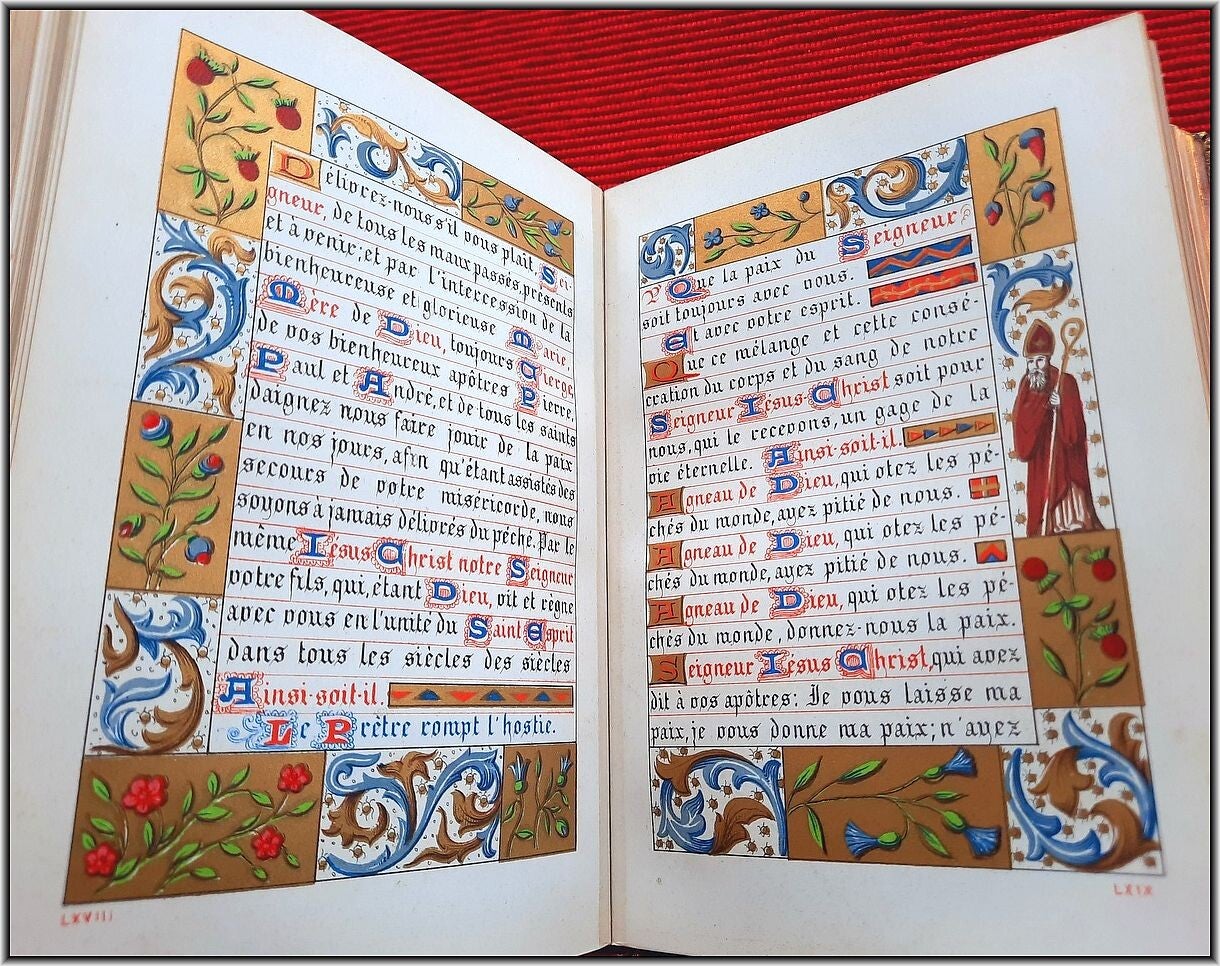 Délivrez-nous s'il vous plait, Sei-
gneur, de tous les maux passés, présents
et à venir; et par l'intercession de la
bienheureuse et glorieuse Marie,
Mère de Dieu, toujours Vierge,
de vos bienheureux apôtres Pierre,
Paul et André, et de tous les saints
daignez nous faire jouir de la paix
en nos jours, afin qu'étant assistés des
secours de votre miséricorde, nous
soyons à jamais délivrés du péché. Par le
même Iésus Christ notre Seigneur
votre fils, qui, étant Dieu, vit et règne
avec vous en l'unité du Saint Esprit
dans tous les siècles des siècles
Ainsi-soit-il.
Le Prêtre rompt l'hostie.
LXVIII
℣ Que la paix du Seigneur
soit toujours avec nous.
Et avec votre esprit.
Que ce mélange et cette consé-
cration du corps et du sang de notre
Seigneur Iésus-Christ soit pour
nous, qui le recevons, un gage de la
vie éternelle. Ainsi-soit-il.
Agneau de Dieu, qui otez les pé-
chés du monde, ayez pitié de nous.
Agneau de Dieu, qui otez les pé-
chés du monde, ayez pitié de nous.
Agneau de Dieu, qui otez les pé-
chés du monde, donnez-nous la paix.
Seigneur Iésus Christ, qui avez
dit à vos apôtres: Je vous laisse ma
paix, je vous donne ma paix; n'ayez
LXIX